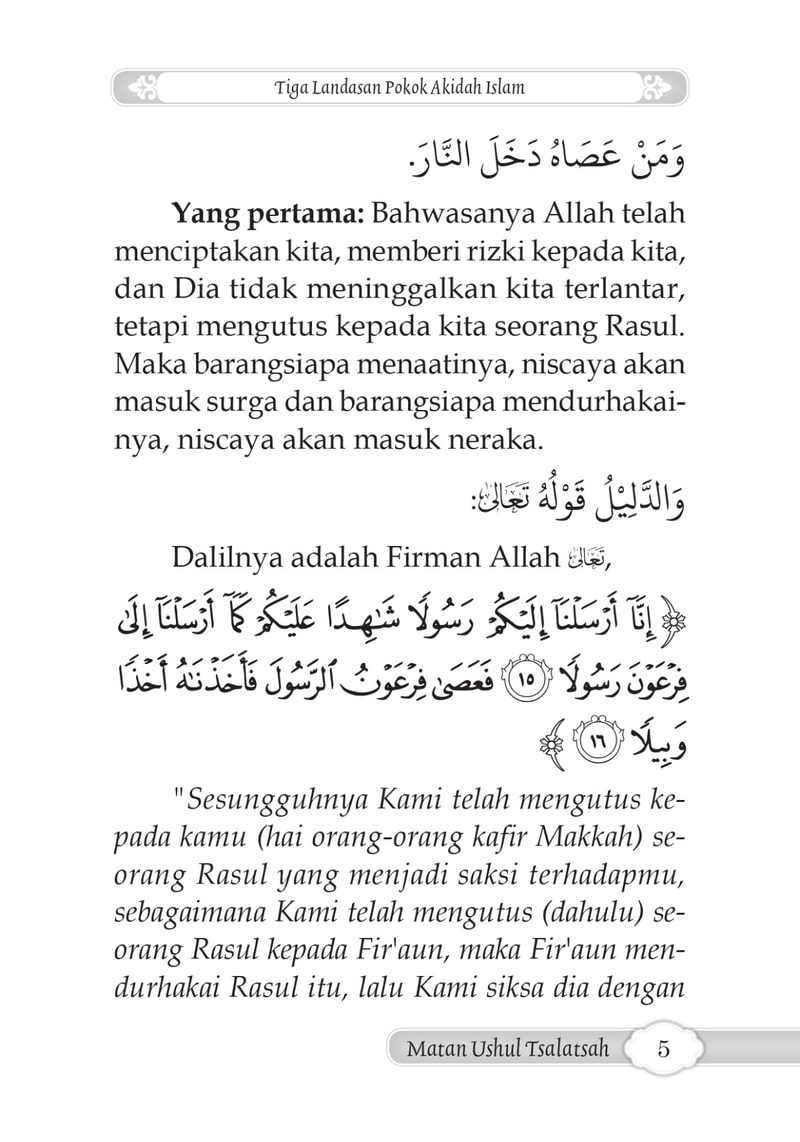 Tiga Landasan Pokok Akidah Islam
وَمَنْ عَصَاهُ دَخَلَ النَّارَ.
Yang pertama: Bahwasanya Allah telah
menciptakan kita, memberi rizki kepada kita,
dan Dia tidak meninggalkan kita terlantar,
tetapi mengutus kepada kita seorang Rasul.
Maka barangsiapa menaatinya, niscaya akan
masuk surga dan barangsiapa mendurhakai-
nya, niscaya akan masuk neraka.
وَالدَّلِيْلُ قَوْلُهُ تَعَالَىٰ:
Dalilnya adalah Firman Allah تَعَالَىٰ,
﴿ إِنَّآ أَرْسَلْنَآ إِلَيْكُمْ رَسُولًا شَـٰهِدًا عَلَيْكُمْ كَمَآ أَرْسَلْنَآ إِلَىٰ
فِرْعَوْنَ رَسُولًا ١٥ فَعَصَىٰ فِرْعَوْنُ ٱلرَّسُولَ فَأَخَذْنَـٰهُ أَخْذًا
وَبِيلًا ١٦ ﴾
"Sesungguhnya Kami telah mengutus ke-
pada kamu (hai orang-orang kafir Makkah) se-
orang Rasul yang menjadi saksi terhadapmu,
sebagaimana Kami telah mengutus (dahulu) se-
orang Rasul kepada Fir'aun, maka Fir'aun men-
durhakai Rasul itu, lalu Kami siksa dia dengan
Matan Ushul Tsalatsah 5